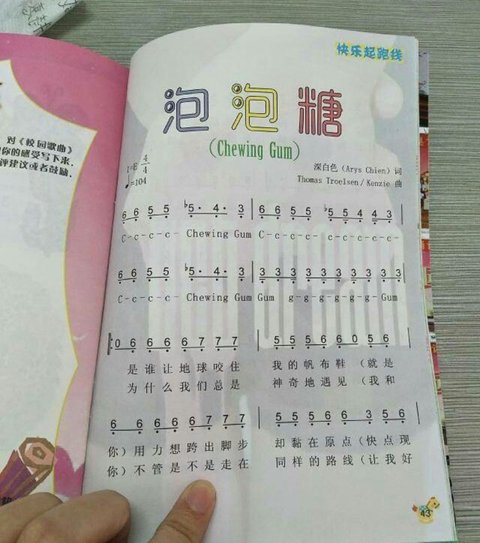 对《校园歌曲》
你的感受写下来,
评建议或者鼓励,
快乐起跑线
泡泡糖
(Chewing Gum)
4/4
♩=104
深白色 (Arys Chien) 词
Thomas Troelsen/Kenzie 曲
6 6 5 5 ♭5· 4· 3 | 6 6 5 5 ♭5 5 4 4 3
C-c-c-c- Chewing Gum C-c-c-c- c-c-c-c-c-
6 6 5 5 ♭5· 4· 3 | 3 3 3 3 3 3 3 3 3 3
C-c-c-c- Chewing Gum Gum g-g-g-g-g-g-Gum
0 6 6 6 6 7 7 7 | 5 5 5 5 6 0 5 6
是 谁 让 地 球 咬 住 我 的 帆 布 鞋 (就 是
为 什 么 我 们 总 是 神 奇 地 遇 见 (我 和
6 6 6 6 6 7 7 7 | 5 5 5 5 6 3 5 6
你) 用 力 想 跨 出 脚 步 却 黏 在 原 点 (快 点 现
你) 不 管 是 不 是 走 在 同 样 的 路 线 (让 我 好
43